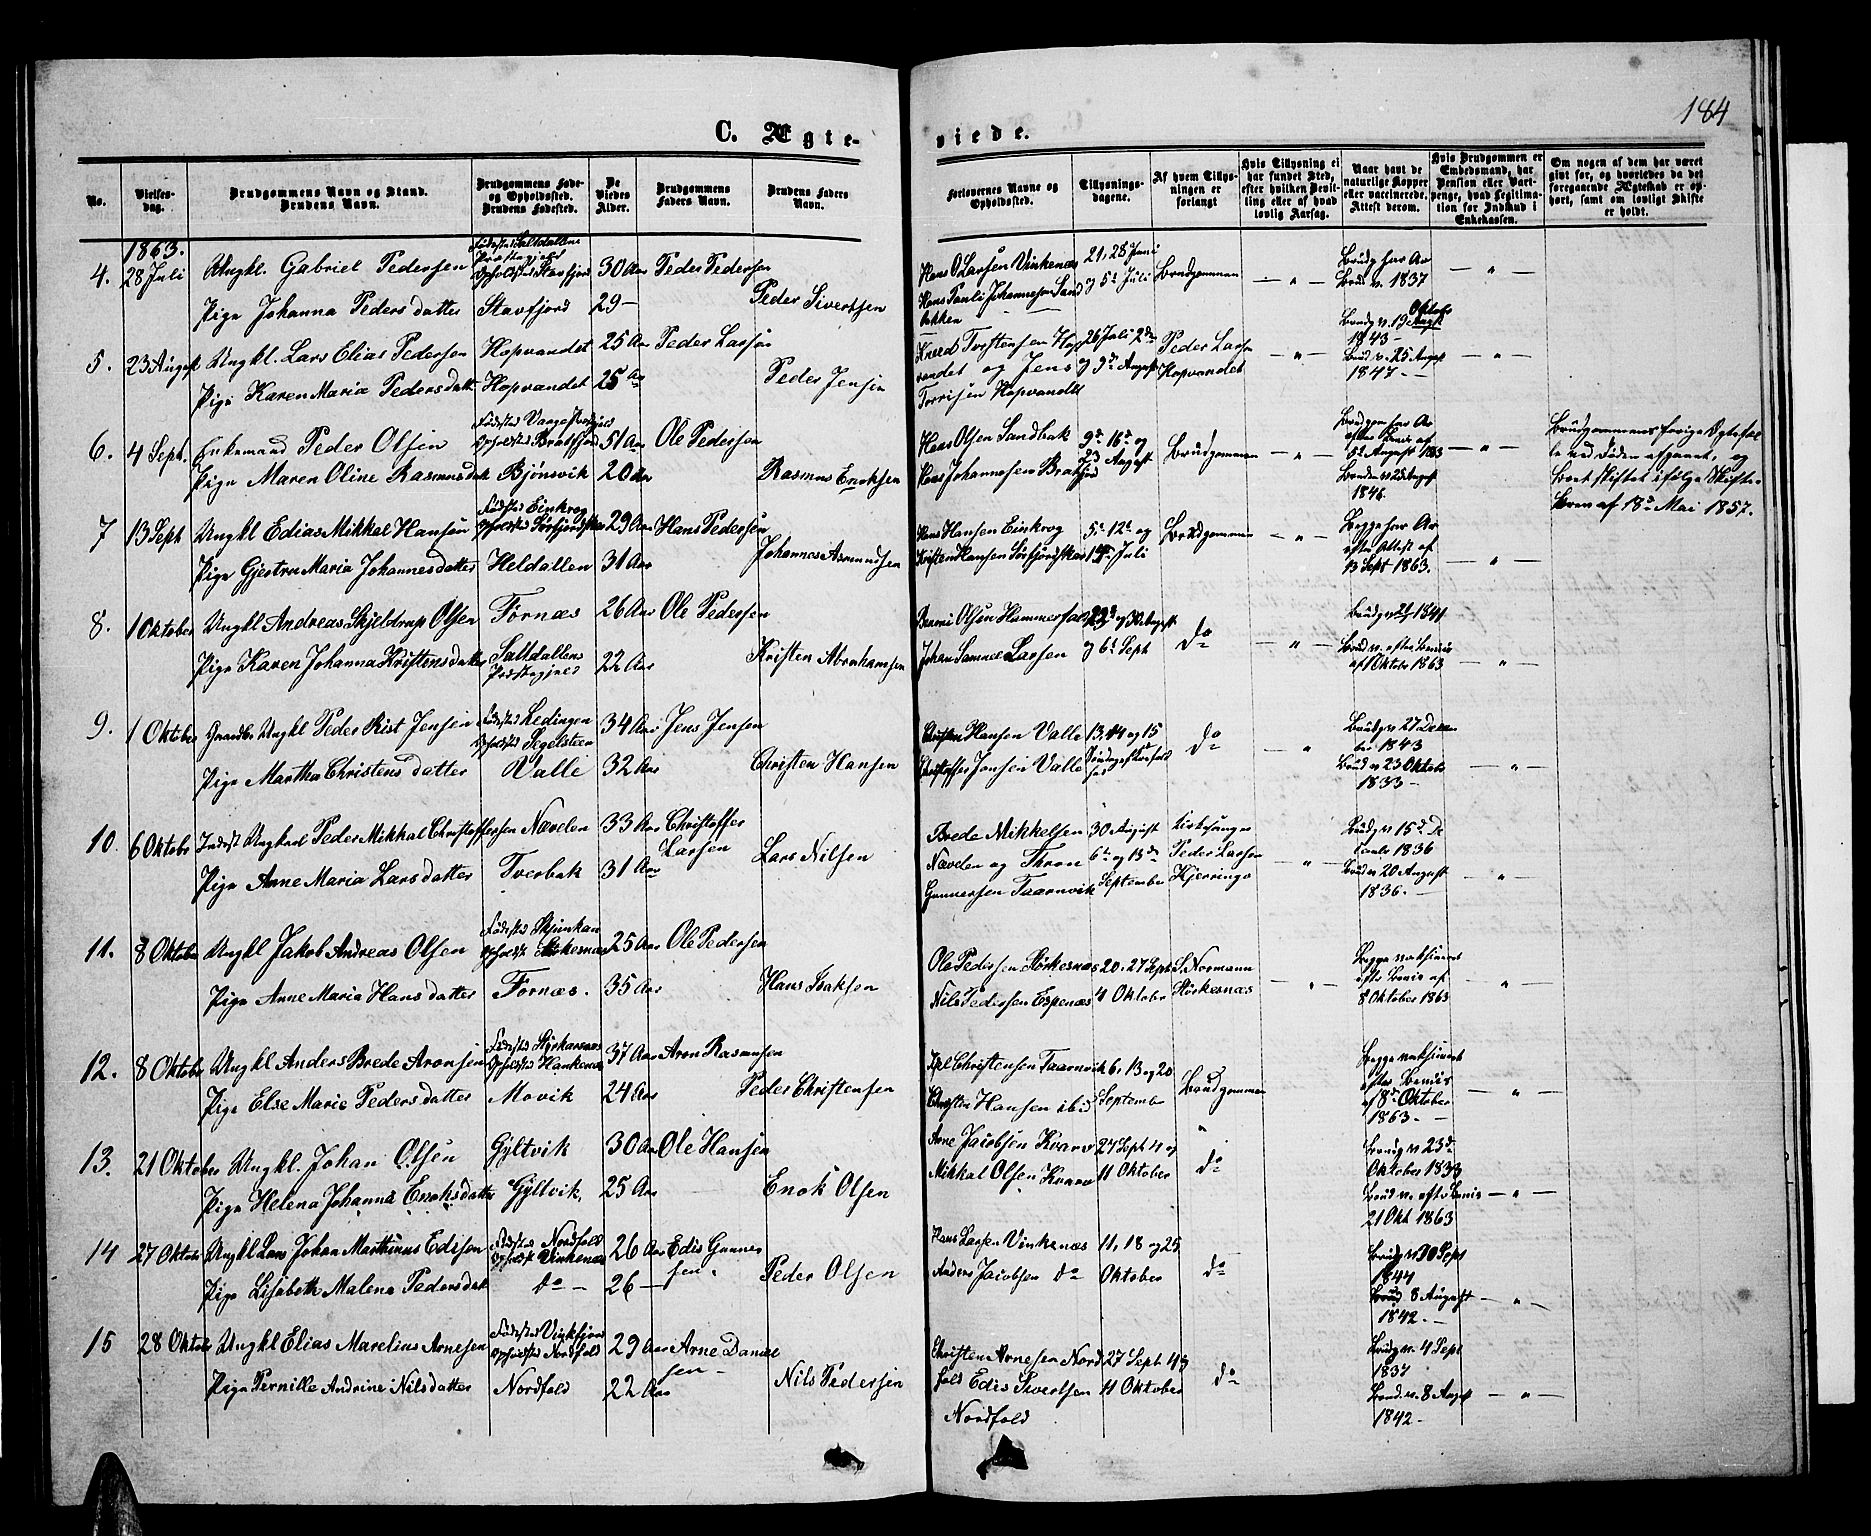 184
C. Ægteviede.
No.
Vielsesdag.
Brudgommens Navn og Stand.
Brudens Navn.
Brudgommens Føde- og Opholdssted.
Brudens Fødested.
De Viedes Alder.
Brudgommens Faders Navn.
Brudens Faders Navn.
Forlovernes Navne og Opholdssted.
Tillysningsdagene.
Af hvem Tillysningen er forlangt
Hvis Tillysning ei har fundet Sted, efter hvilken Bevilling eller af hvad lovlig Aarsag.
Naar havt de naturlige Kopper eller vaccinerede. Attest derom.
Hvis Brudgommen er Embedsmand, har Pension eller Vartpenge, hvad Legitimation for Indskud i Enkekassen.
Om nogen af dem har været givt før, og hvorledes da det foregaaende Ægteskab er ophørt, samt om lovligt Skifte er holdt.
1863.
4. 28 Juli Ungkl. Gabriel Pedersen Fødested Saltdallens Præstegjeld Opholdsted Stavfjord 30 Aar Peder Pedersen Hans O Larsen Vinkenæs 21, 28 Juni og 5te Juli Brudgommen — " — 1837 — " —
Pige Johanna Pedersdatter Stavfjord 29 — Peder Sivertsen Hans Pauli Johannesen Sandbakken
5. 23 August Ungkl. Lars Elias Pedersen Hopvandet 25 Aar Peder Larsen Torstensen Hopvandet og Jens Torrisen Hopvandet 26 Juli 2den og 9de August Peder Larsen Hopvandet — " — Brudg v. 19 Oktober 1843 — " —
Pige Karen Maria Pedersdatt Hopvandet 25 Aar Peder Jensen Brud v. 25 August 1847. —
6. 4 Sept. Enkemand Peder Olsen 51 Aar Ole Pedersen Hans Olsen Sandbak 9de 16de og 23 August Brudgommen — " — 5te August 1863 — " — Brudgommens forrige Egtefælle ved Døden afgaaet, og
Pige Maren Oline Rasmusdat Bjønsvik 20 Aar Rasmus Enoksen Hans Johannesen Bratfjord 1846. holdt Skiftet ifølge Skiftebrev af 18de Mai 1857.
7 13 Sept Ungkl Edias Mikkal Hansen Fødested Einkrog 29 Aar Hans Pedersen Hans Hansen Einkrog 5te 12te og Juli Brudgommen — " — Begge har Ar efter Attest af 13 Sept 1863. — " —
Pige Gjestru Maria Johannesdatter Heldallen 31 Aar Johannes Asmundsen Kristen Hansen Sørfjordskar
8. 1 Oktober Ungkl Andreas Skjeldrup Olsen Fornæs 26 Aar Ole Pedersen Olsen Hammerfald og 6te Sept do — " — 1841
Pige Karen Johanna Kristensdatter Saltdallens Præstegjeld 22 Aar Kristen Abrahamsen Johan Samuel Larsen Brud v. efter Bevis af 1 Oktober 1863 — " —
9. 1 Oktober Ungkl Peder Rist Jensen Fødested Ledingen Opholdsted Segelsteen 34 Aar Jens Jensen Christen Hansen Valle 13, 14 og 15 do — " — Brudg v 27 Decem ber 1843
Pige Martha Christensdatter Valle 32 Aar Christen Hansen Christoffer Jonsen Valle Brud v 23 Oktober 1833 — — " —
10. 6 Oktober Inderst Ungkarl Peder Mikkal Christoffersen Nævelen 33 Aar Christoffer Larsen Brede Mikkelsen Nævelen og Thron Gunnersen Taarnvik 30 August 6te og 13de September Kirkesanger Peder Larsen Kjerringø — " — Brudg v 15de De cember 1836
Pige Anne Maria Larsdatter Tverbak 31 Aar Lars Nilsen Brud v 20 August 1836. — — " —
11. 8 Oktober Ungkl Jakob Andreas Olsen 25 Aar Ole Pedersen Ole Pedersen Størkesnæs 20. 27 Sept 4 Oktober S. Normann Størkesnæs — " — Begge vaksineret efter Bevis af 8 Oktober 1863 — " —
Pige Anne Maria Hansdatter Fornæs. 35 Aar Hans Isaksen Nils Pedersen Espenæs
12. 8 Oktober Ungkl Anders Brede Aronsen 37 Aar Aron Rasmusen Christensen Taarnvik 6. 13 og 20 September Brudgommen Begge vaksineret efter Bevis af 8de Oktober 1863. — — " —
Pige Else Marie Pedersdatter Movik 24 Aar Peder Christensen Christen Hansen ibid
13. 21 Oktober Ungkl. Johan Olsen Gyltvik 30 Aar Ole Hansen Arne Jacobsen Kvarv 27 Sept 4 og 11 Oktober do Brudg v 23de Oktober 1833
Pige Helena Johanna Enoksdatter Gyltvik. 25 Aar Enok Olsen Mikkal Olsen Kvarv Brud v. efter Bevis 21 Okt 1863 — " —
14 27 Oktober Ungkl Lars Johan Marthinus Edisen Fødested Nordfold Opholdsted Vinkenæs 26 Aar Edis Gunnersen. Hans Larsen Vinkenæs 11, 18 og 25 Oktober do Sept 1844
Pige Lisabeth Malena Pedersdat do — 26 — Peder Olsen Anders Jacobsen do Brud 8 August 1842. — — " —
15 28 Oktober Ungkl Elias Marelius Arnesen Fødested Vinkfjord Opholdsted Nordfold 29 Aar Arne Danielsen — Christen Arnesen Nordfold Edis Sivertsen Nordfold 27 Sept 4 og 11 Oktober do Brudg v. 4 Sept 1837
Pige Pernille Andrine Nilsdatter Nordfold 22 Aar Nils Pedersen Brud v. 8 August 1842 — — " —